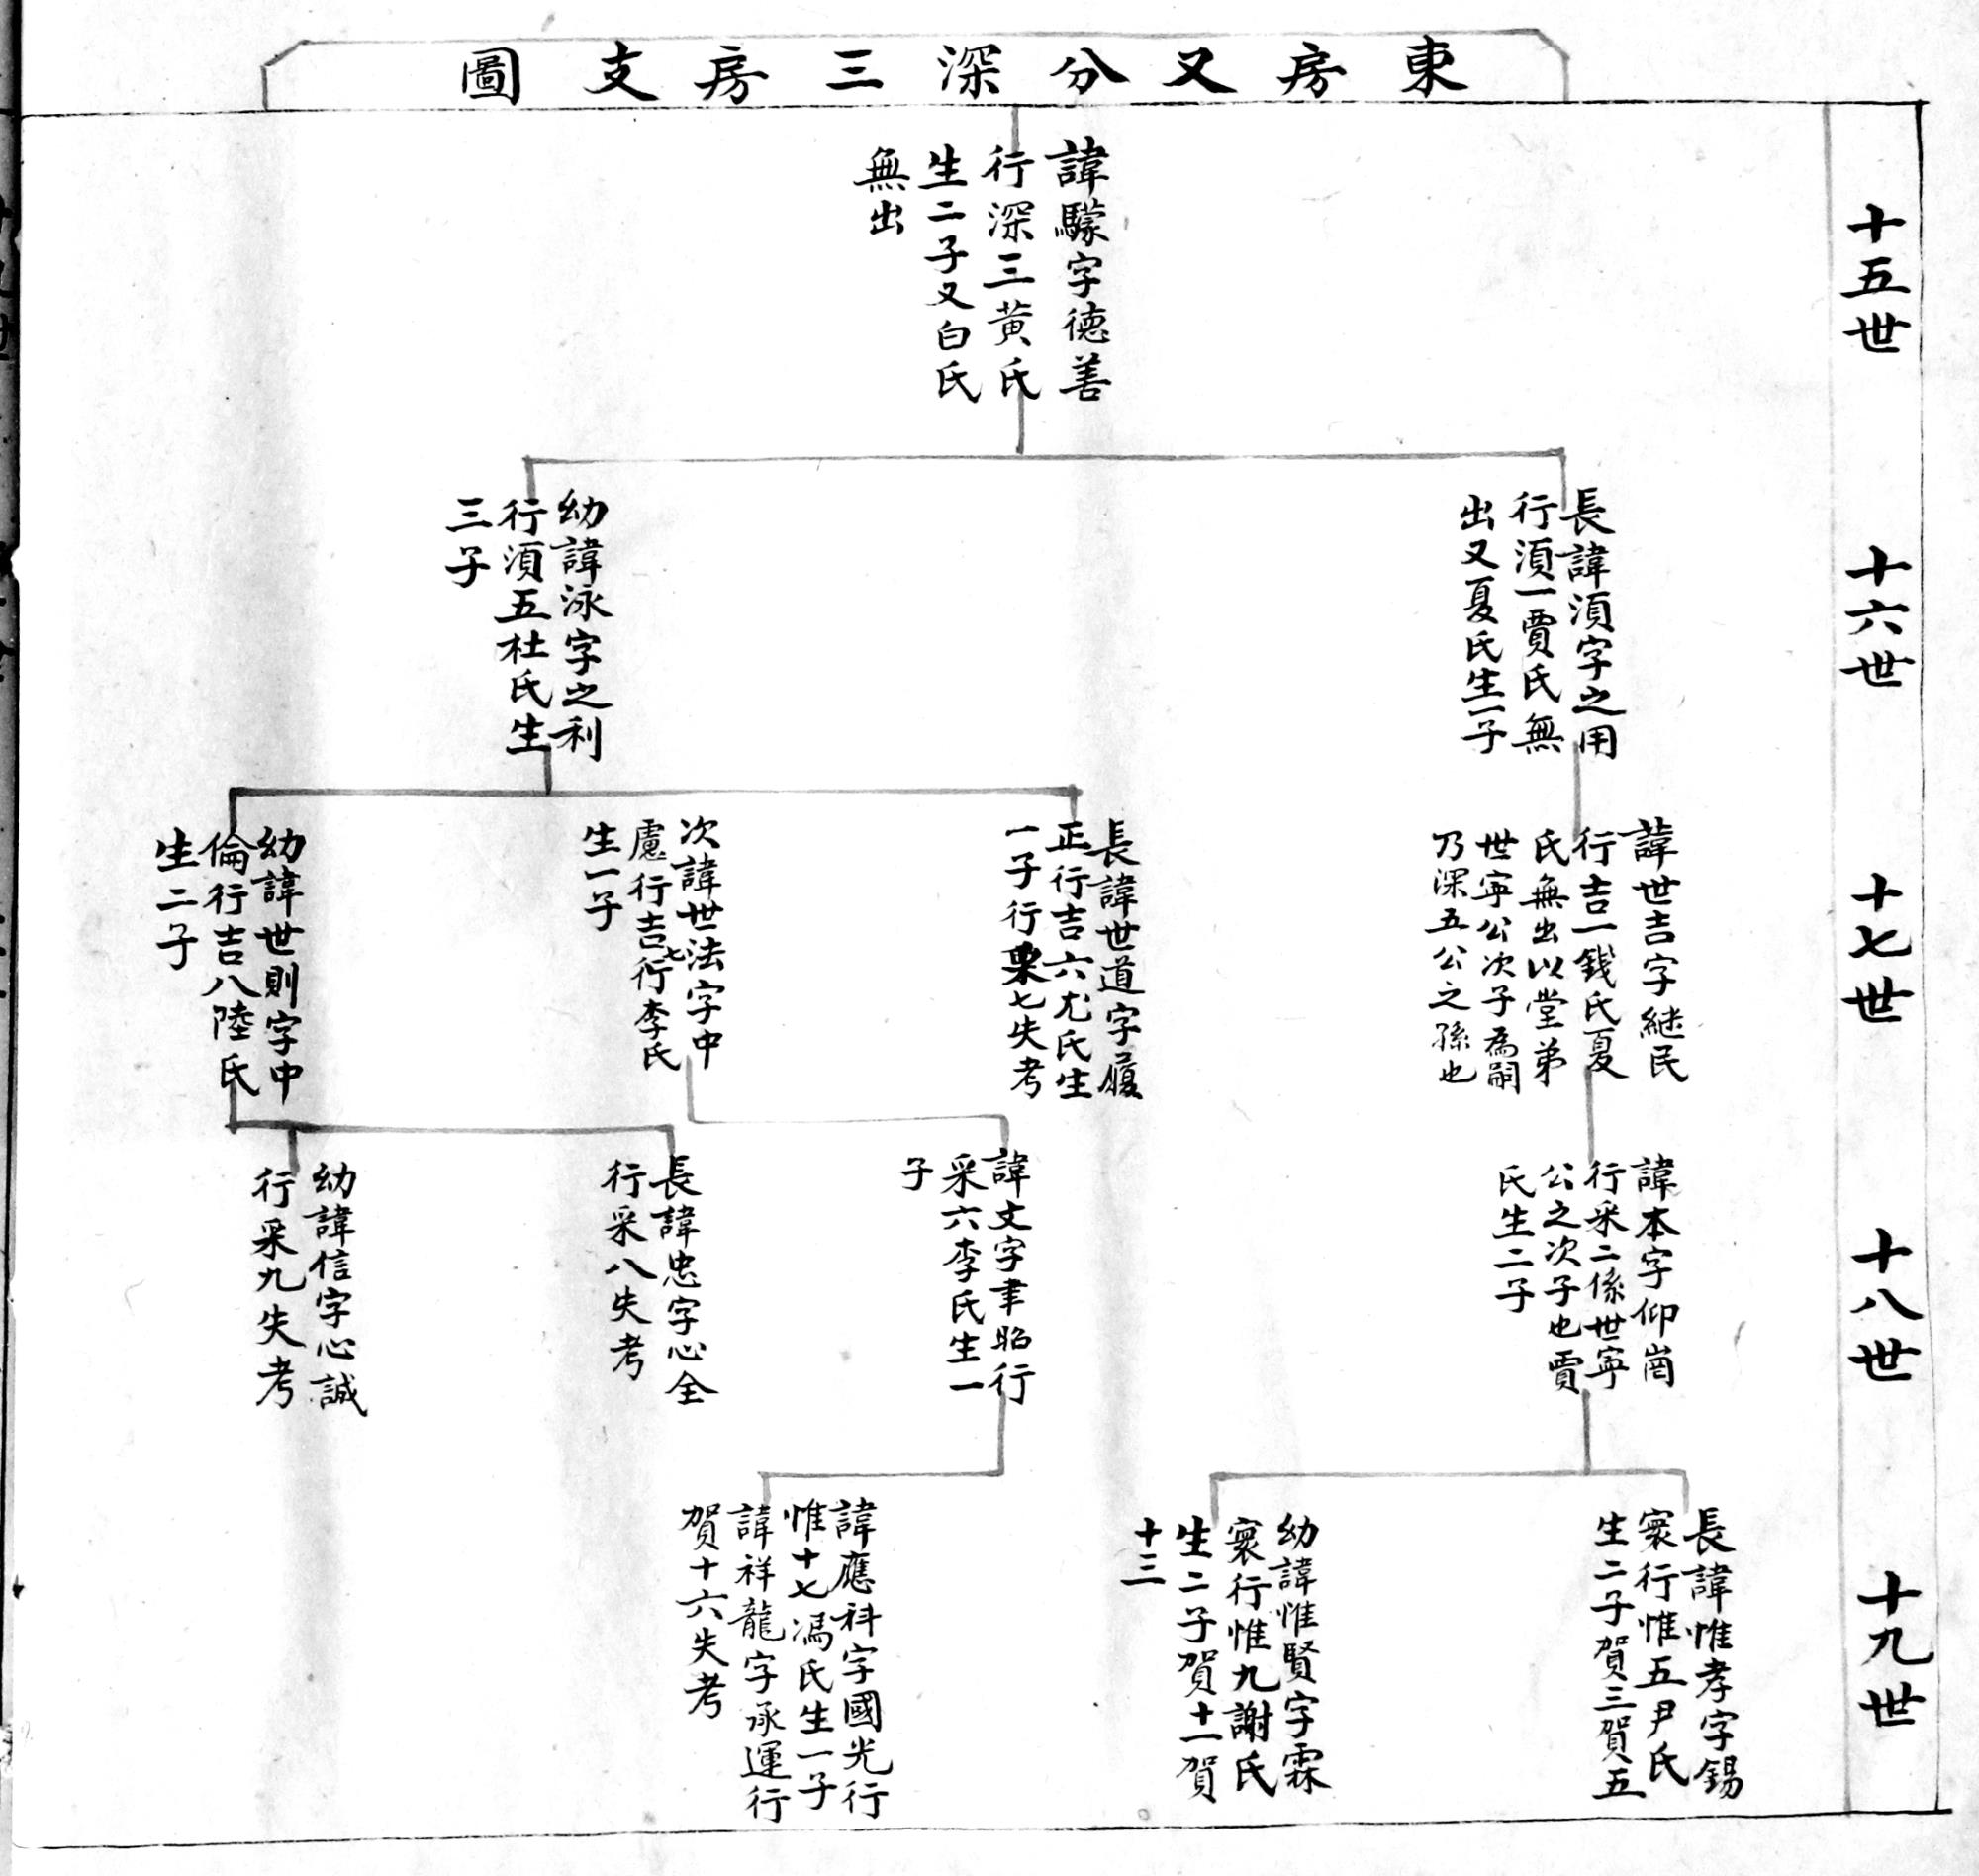 東房又分深三房支圖
十五世
諱驜字德善
行深三黃氏
生二子又白氏
無出
十六世
長諱湏字之用
行湏一賈氏無
出又夏氏生一子
幼諱泳字之利
行湏五杜氏生
三子
十七世
諱世吉字継民
行吉一錢氏夏
氏無出以堂弟
世寧公次子為嗣
乃深五公之孫也
長諱世道字履
正行吉六尤氏生
一子行栗七失考
次諱世法字中
慮行吉七行李氏
生一子
幼諱世則字中
倫行吉八陸氏
生二子
十八世
諱本字仰崗
行采二係世寧
公之次子也賈
氏生二子
諱文字聿昭行
采六李氏生一
子
長諱忠字心全
行采八失考
幼諱信字心誠
行采九失考
十九世
長諱惟孝字錫
寰行惟五尹氏
生二子賀三賀五
幼諱惟賢字霖
寰行惟九謝氏
生二子賀十一賀
十三
諱應科字國光行
惟十七馮氏生一子
諱祥龍字承運行
賀十六失考